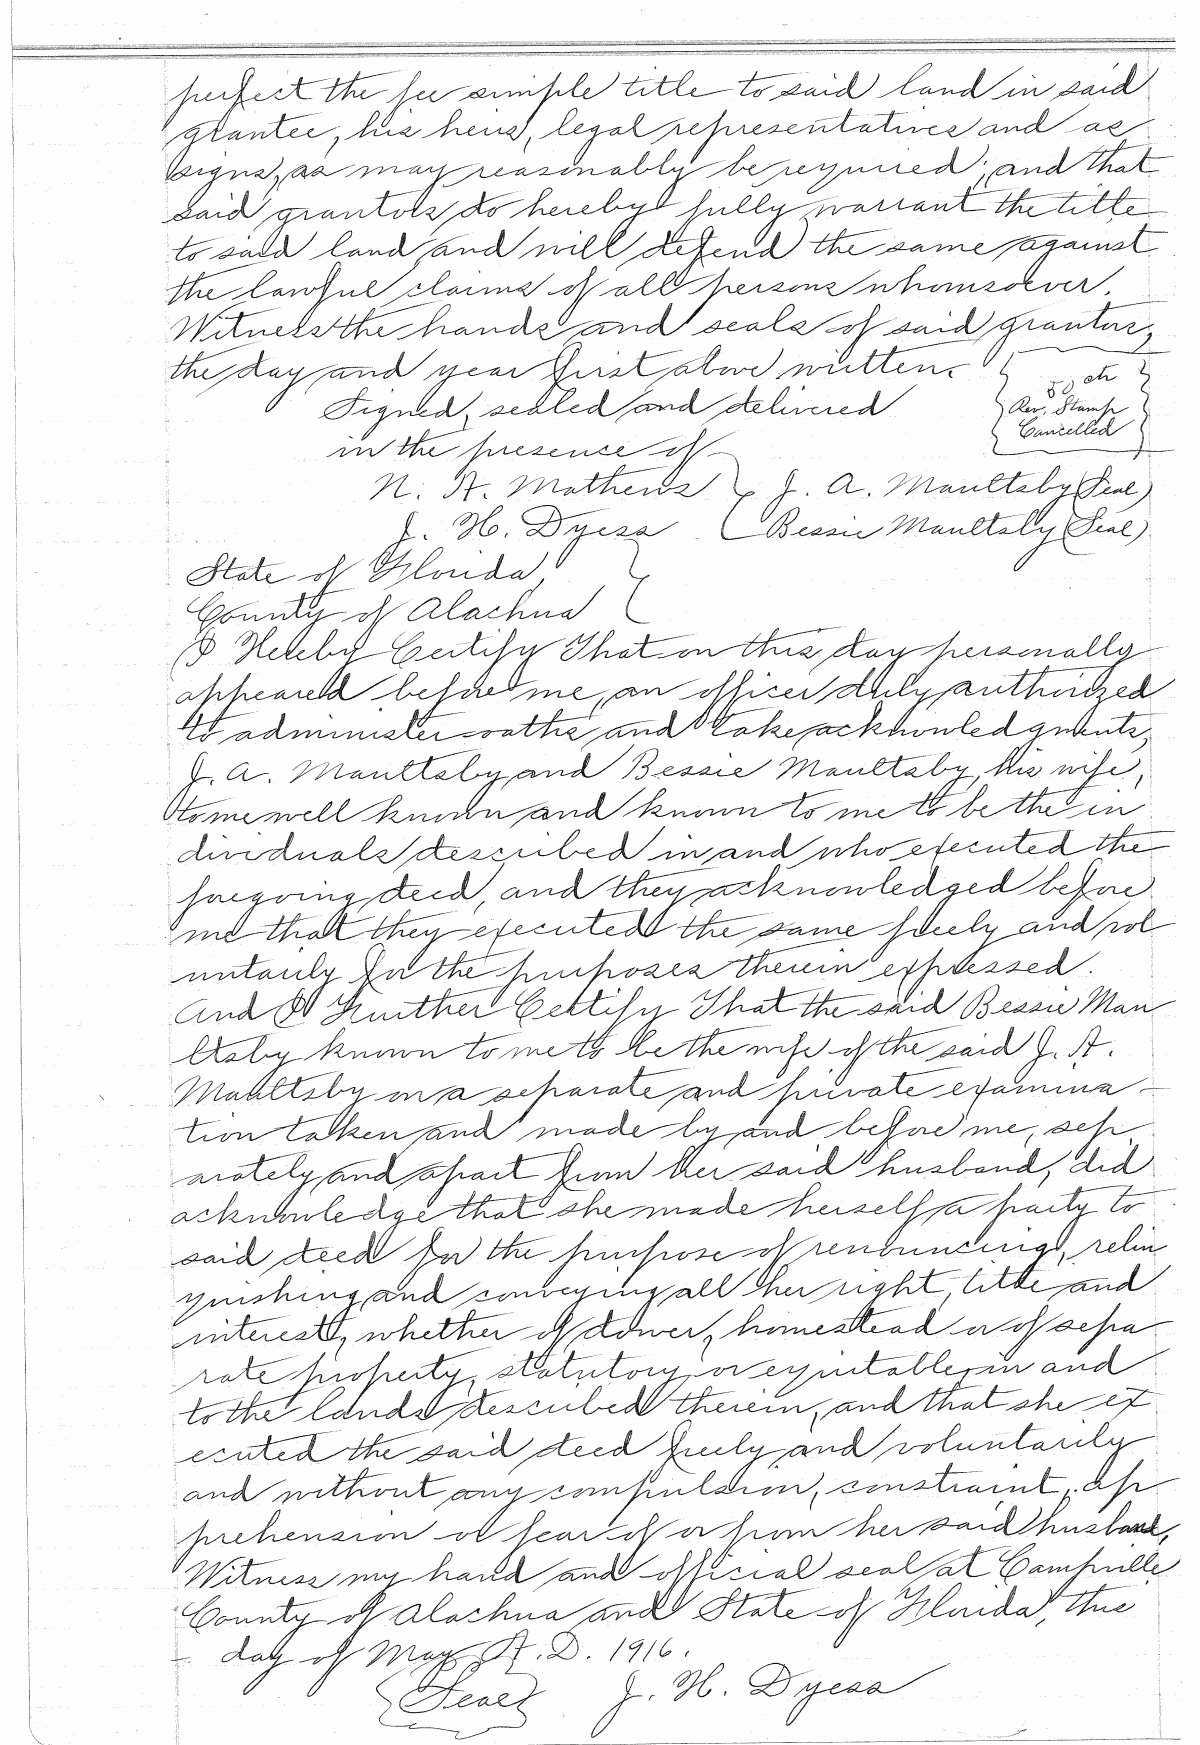 perfect the fee simple title to said land in said
grantee, his heirs, legal representatives and as
signs, as may reasonably be required; and that
said grantors do hereby fully warrant the title
to said land and will defend the same against
the lawful claims of all persons whomsoever.
Witness the hands and seals of said grantors,
the day and year first above written.
50 cts
Rev. Stamp
Cancelled
Signed, sealed and delivered
in the presence of
N. A. Mathews J. A. Maultsby (Seal)
J. H. Dyess Bessie Maultsby (Seal)
State of Florida,
County of Alachua
I Hereby Certify That on this day personally
appeared before me, an officer duly authorized
to administer oaths and take acknowledgments,
J. A. Maultsby and Bessie Maultsby, his wife,
to me well known and known to me to be the in
dividuals described in and who executed the
foregoing deed, and they acknowledged before
me that they executed the same freely and vol
untarily for the purposes therein expressed.
And I Further Certify That the said Bessie Mau
ltsby known to me to be the wife of the said J. A.
Maultsby on a separate and private examina-
tion taken and made by and before me, sep
arately and apart from her said husband, did
acknowledge that she made herself a party to
said deed for the purpose of renouncing, relin
quishing and conveying all her right, title and
interest, whether of dower, homestead or of sepa
rate property, statutory or equitable, in and
to the lands described therein, and that she ex
ecuted the said deed freely and voluntarily
and without any compulsion, constraint, ap
prehension or fear of or from her said husband,
Witness my hand and official seal at Campville
County of Alachua and State of Florida, this
day of May A. D. 1916.
(Seal) J. H. Dyess